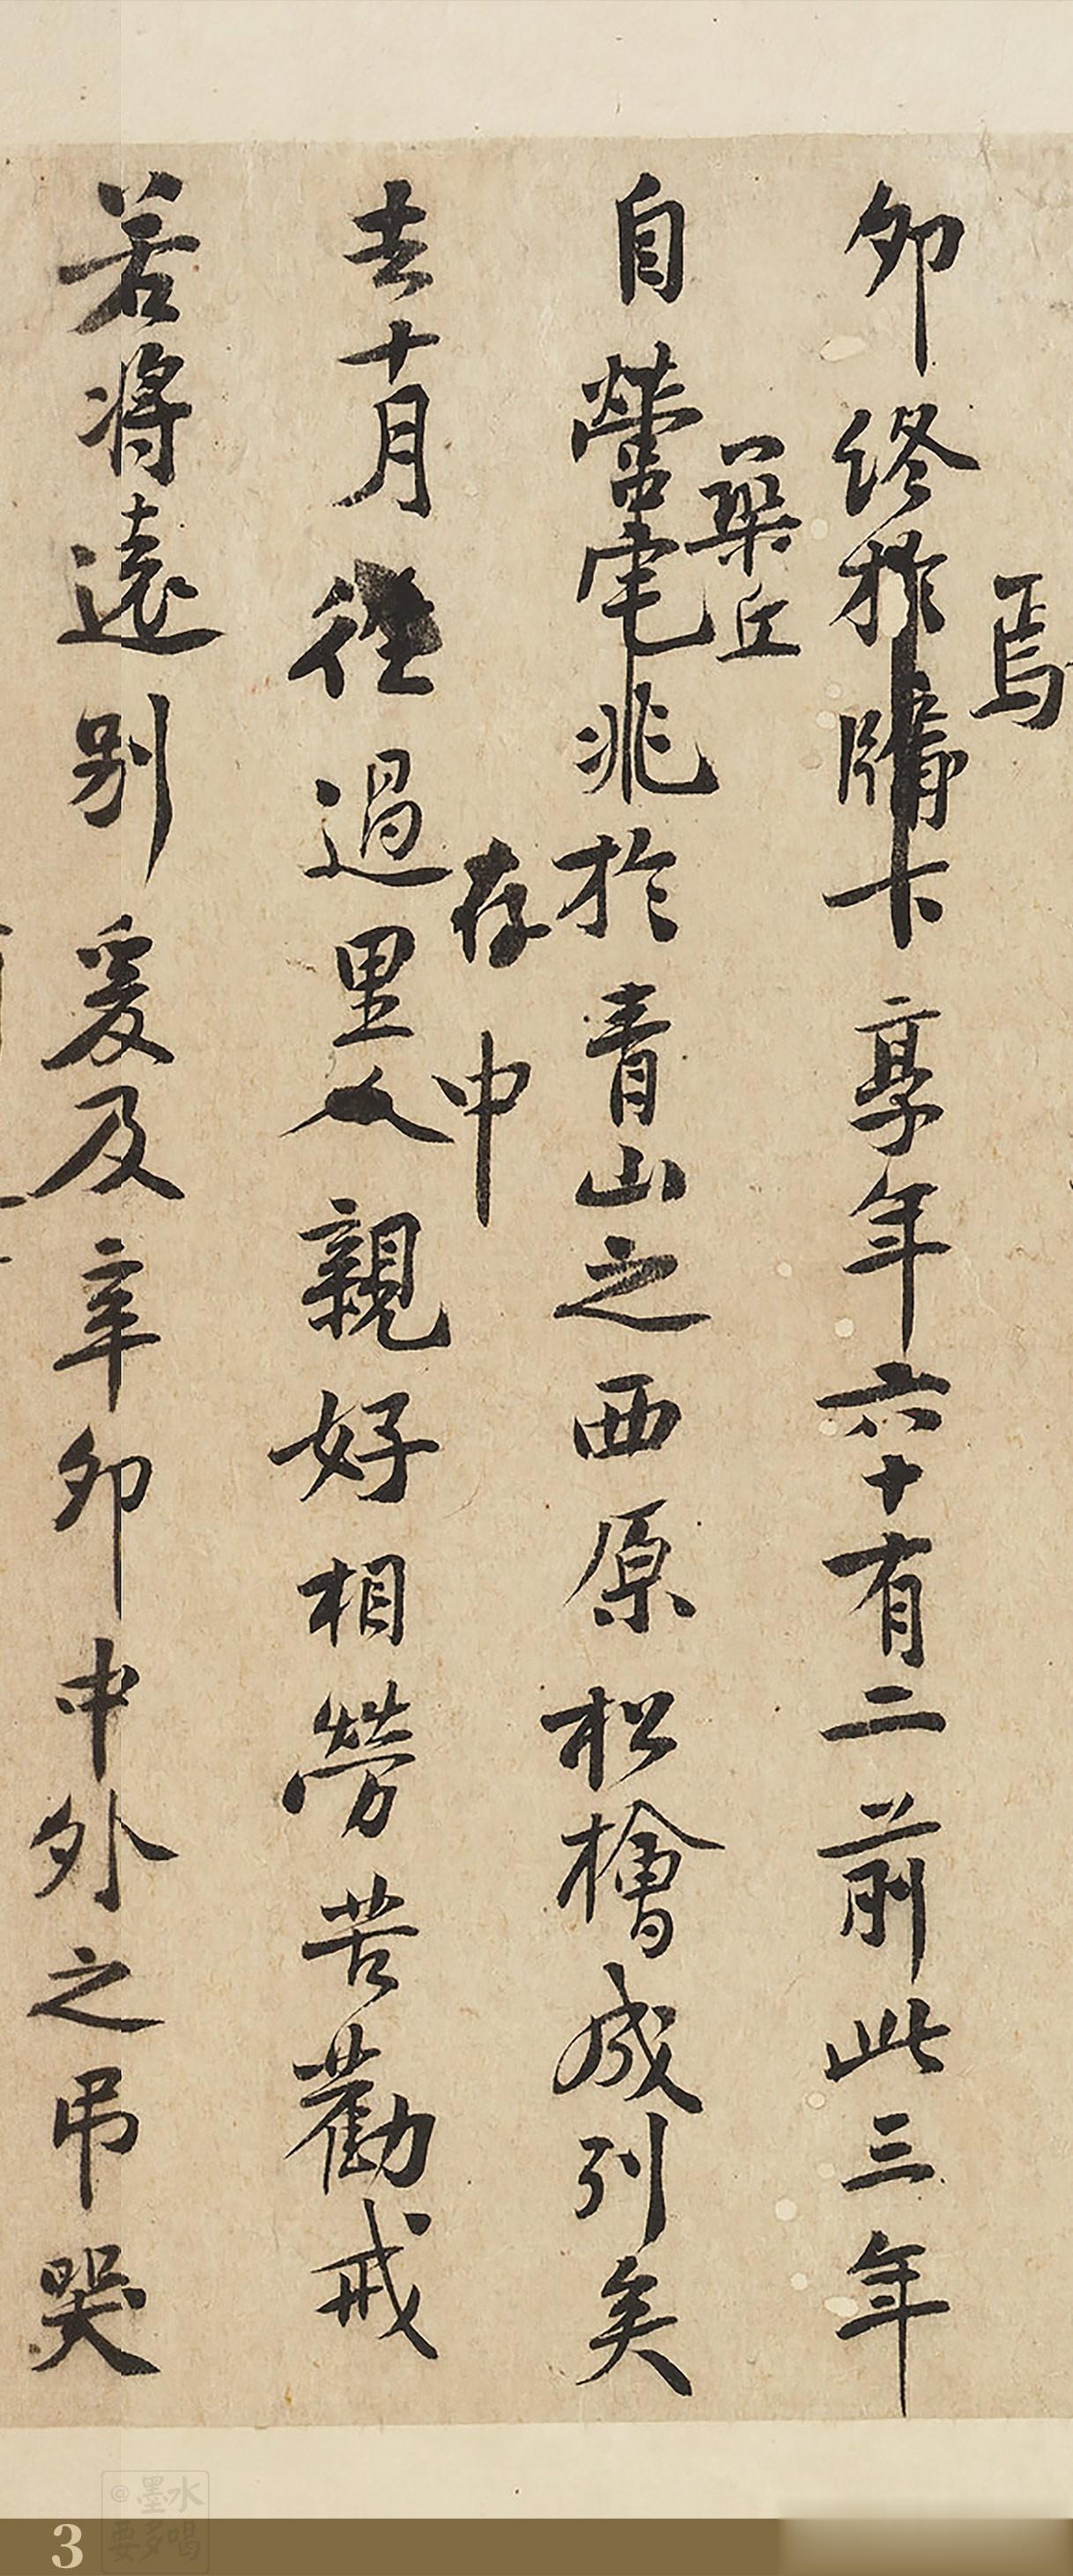 焉
卯終於牖下享年六十有二前此三年
丘
自營宅兆於青山之西原松檜成列矣
存中
去十月過里人親好相勞苦勸戒
若將遠別爰及辛卯中外之弔哭
3
@墨水
要多喝